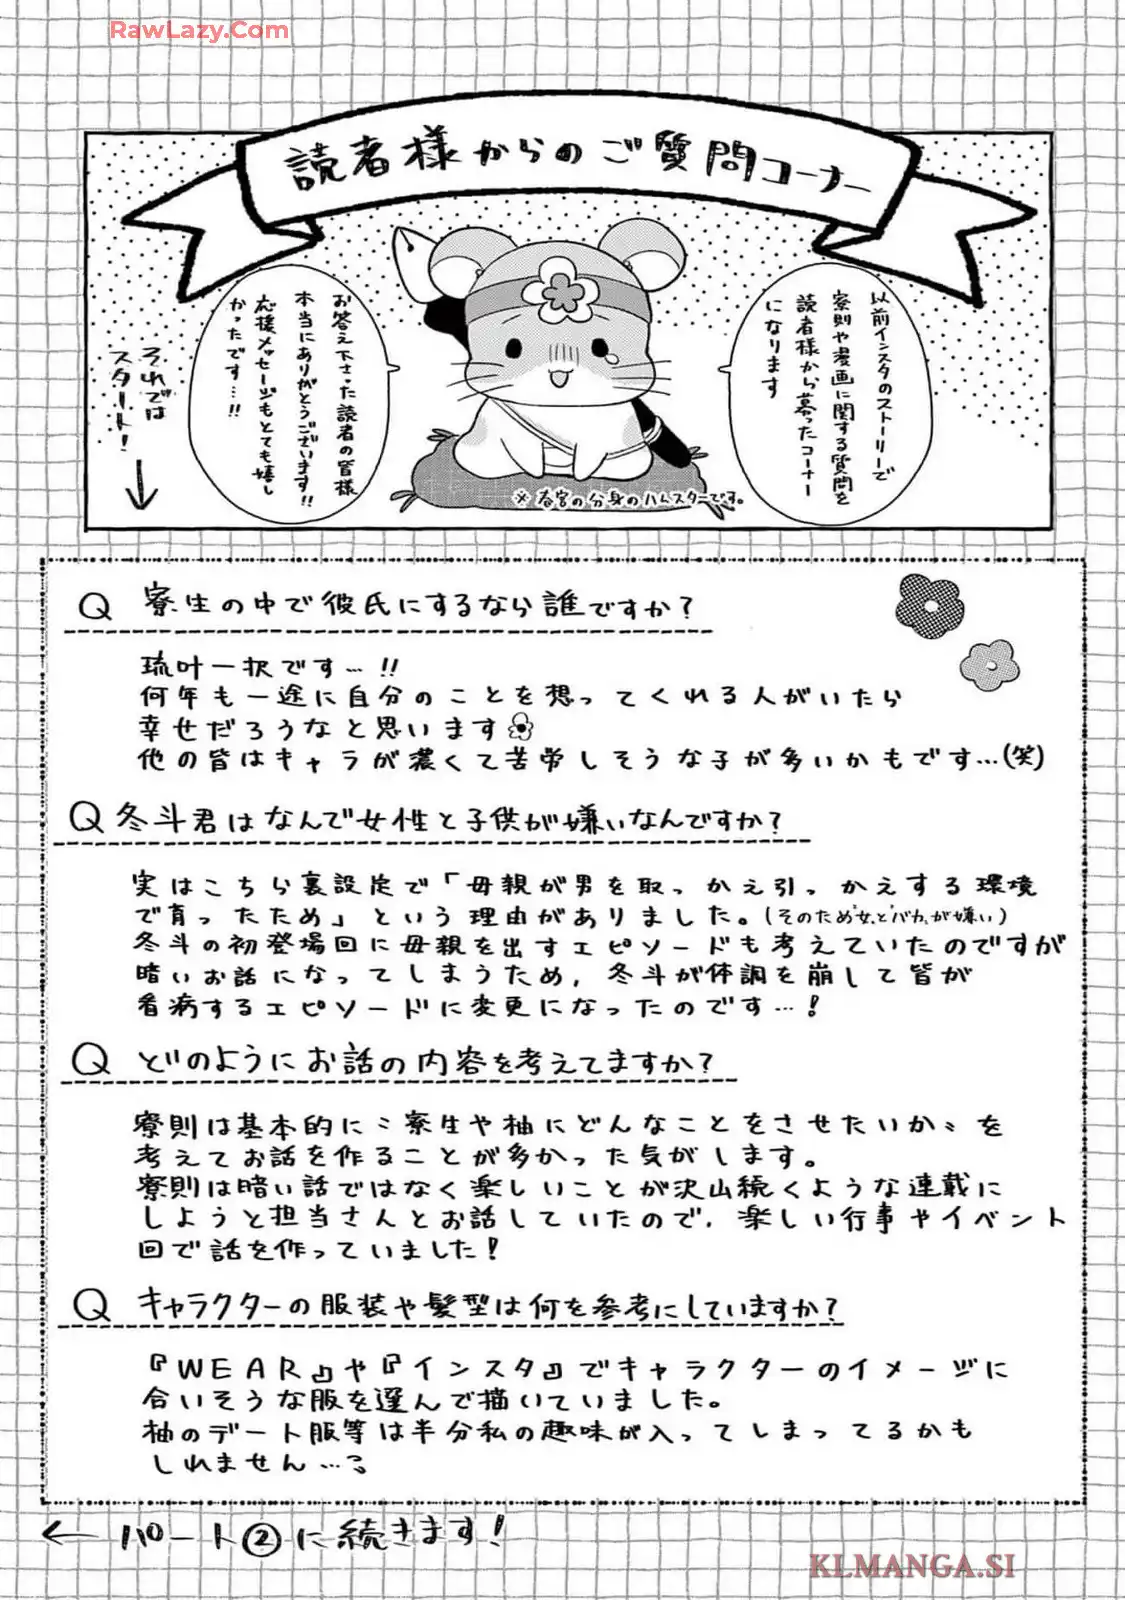 RawLazy.Com
読者様からのご質問コーナー
以前インスタのストーリーで
寮則や漫画に関する質問を
読者様から募ったコーナー
になります
お答え下さった読者の皆様
本当にありがとうございます!!
応援メッセージもとても嬉し
かったです…!!
それでは
スタート!
※春宮の分身のハムスターです。
Q 寮生の中で彼氏にするなら誰ですか?
琉叶一択です…!!
何年も一途に自分のことを想ってくれる人がいたら
幸せだろうなと思います
他の皆はキャラが濃くて苦労しそうな子が多いかもです…(笑)
Q 冬斗君はなんで女性と子供が嫌いなんですか?
実はこちら裏設定で「母親が男を取っかえ引っかえする環境
で育ったため」という理由がありました。(そのため"女"と"バカ"が嫌い)
冬斗の初登場回に母親を出すエピソードも考えていたのですが
暗いお話になってしまうため,冬斗が体調を崩して皆が
看病するエピソードに変更になったのです…!
Q どのようにお話の内容を考えてますか?
寮則は基本的に〝寮生や柚にどんなことをさせたいか〟を
考えてお話を作ることが多かった気がします。
寮則は暗い話ではなく楽しいことが沢山続くような連載に
しようと担当さんとお話していたので,楽しい行事やイベント
回で話を作っていました!
Q キャラクターの服装や髪型は何を参考にしていますか?
『WEAR』や『インスタ』でキャラクターのイメージに
合いそうな服を選んで描いていました。
柚のデート服等は半分私の趣味が入ってしまってるかも
しれません…?
← パート②に続きます!
KLMANGA.SI